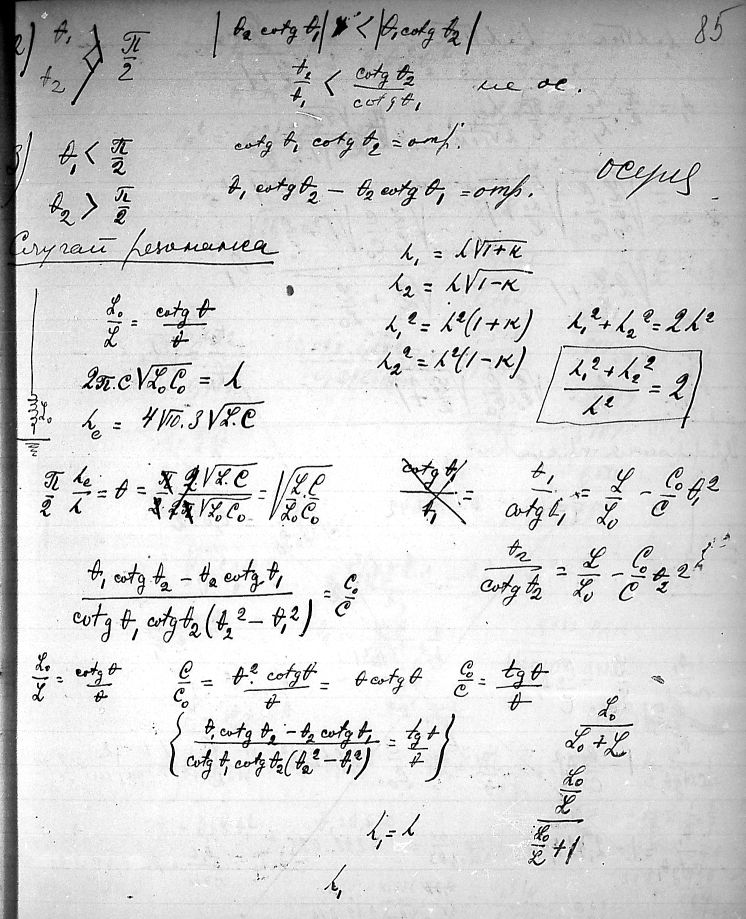 85
2) ϑ₁ ϑ₂ > π/2 |ϑ₂ cotg ϑ₁| < |ϑ₁ cotg ϑ₂|
ϑ₂/ϑ₁ < cotg ϑ₂/cotg ϑ₁ не ос.
3) ϑ₁ < π/2 cotg ϑ₁ cotg ϑ₂ = отр.
ϑ₂ > π/2 ϑ₁ cotg ϑ₂ − ϑ₂ cotg ϑ₁ = отр. осущ
Случай резонанса
λ₁ = λ√1+κ
λ₂ = λ√1−κ
L₀/L = cotg ϑ/ϑ λ₁² = λ²(1+κ) λ₁²+λ₂² = 2λ²
2π.c√L₀C₀ = λ λ₂² = λ²(1−κ) (λ₁²+λ₂²)/λ² = 2
L₀ λe = 4√10.3√L.C
π/2 λe/λ = ϑ = = √(L.C/L₀C₀) cotg ϑ₁/ϑ₁ = ϑ₁/cotg ϑ₁ = L/L₀ − C₀/C ϑ₁²
ϑ₂/cotg ϑ₂ = L/L₀ − C₀/C ϑ₂²
(ϑ₁ cotg ϑ₂ − ϑ₂ cotg ϑ₁)/(cotg ϑ₁ cotg ϑ₂(ϑ₂² − ϑ₁²)) = C₀/C
L₀/L = cotg ϑ/ϑ C/C₀ = ϑ² cotg ϑ/ϑ = ϑ cotg ϑ C₀/C = tg ϑ/ϑ
{(ϑ₁ cotg ϑ₂ − ϑ₂ cotg ϑ₁)/(cotg ϑ₁ cotg ϑ₂(ϑ₂² − ϑ₁²)) = tg ϑ/ϑ} L₀/(L₀ + L)
(L₀/L)/(L₀/L + 1)
λ₁ = λ
λ₁